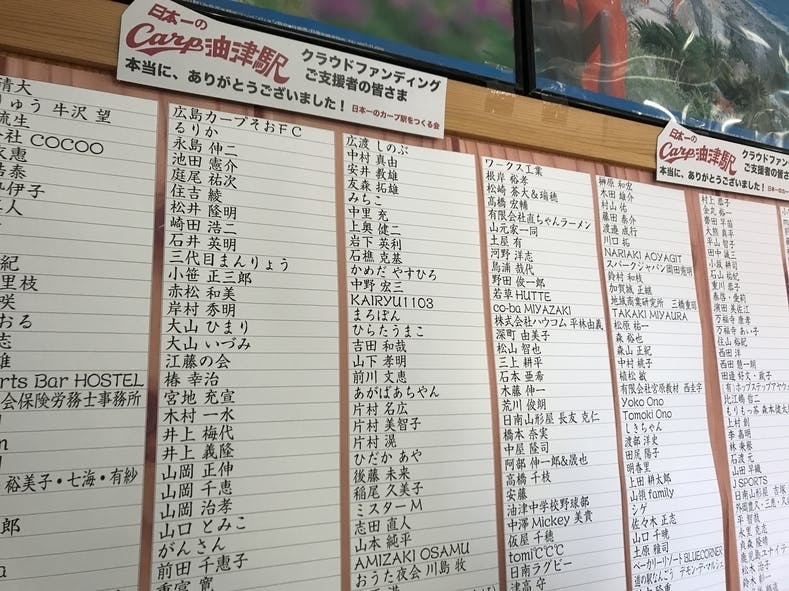 日本一の
Carp油津駅
クラウドファンディング
ご支援者の皆さま
本当に、ありがとうございました！
日本一のカープ駅をつくる会
日本一の
Carp油津駅
クラウドファン
ご支援者の皆さ
本当に、ありがとうございました！
清大
りゅう 牛沢 望
流生
会社 COCOO
恵
伊子
人
紀
里枝
咲
おる
志
雄
rts Bar HOSTEL
会保険労務士事務所
裕美子・七海・有紗
郎
広島カープそおＦＣ
るりか
永島 伸二
池田 憲介
庭尾 祐次
住吉 綾
松井 隆明
崎田 浩二
石井 英明
三代目まんりょう
小笹 正三郎
赤松 和美
岸村 秀明
大山 ひまり
大山 いづみ
江藤の会
椿 幸治
宮地 充宣
木村 一水
井上 梅代
井上 義隆
山岡 正伸
山岡 千恵
山岡 治孝
山口 とみこ
がんさん
前田 千恵子
重富 寛
広渡 しのぶ
中村 真由
安井 教雄
友森 拓雄
みちこ
中里 充
上奥 健二
岩下 英利
石樵 克基
かめだ やすひろ
中野 宏三
KAIRYU1103
まろぽん
ひらたうまこ
吉田 和哉
山下 孝明
前川 文恵
あがぱあちやん
片村 名広
片村 美智子
片村 滉
ひだか あや
後藤 未来
稲尾 久美子
ミスターＭ
志田 直人
山本 純平
AMIZAKI OSAMU
おうた夜会 川島 牧
ワークス工業
根岸 裕孝
松崎 茶大＆瑞穂
高橋 宏輔
有限会社直ちゃんラーメン
山元家一同
土屋 有
河野 洋志
鳥浦 哉代
野田 俊一郎
若草HUTTE
co-ba MIYAZAKI
株式会社ハウコム 平林由義
深町 由美子
松山 智也
三上 耕平
石本 亜希
木藤 伸一
荒川 俊朗
日南山形屋 長友 克仁
橋本 奈実
中屋 隆司
阿部 伸一郎＆晟也
高橋 千枝
安藤
油津中学校野球部
中澤 Mickey 美貴
仮屋 千穂
tomiCCC
日南ラグビー
津高 守
榊原 和宏
木田 雄介
村山 佑
藤田 泰介
渡邉 成行
川口 拓
NARIAKI AOYAGIT
スパークジャパン岡田憲明
鈴村 和枝
加賀城 正継
地域商業研究所 三橋重昭
TAKAKI MIYAURA
松原 祐一
森 裕也
森山 正紀
中村 桃子
植松 敏
有限会社宮原教材 西圭字
Yoko Ono
Tomoki Ono
しきちゃん
渡部 洋史
田尻 陽子
明春里
上田 耕太郎
山領family
シゲ
佐々木 正志
山口 千暁
土原 雅司
ベーカリーリゾートBLUECORNER
道の駅なんごう テモンデ・マルシェ
村上 恭子
金丸 裕一
齋田 早苗
大熊 真平
平山 智子
田中 誠三
小坂 耕司
石山 裕紀
重川 恭子
泰啓・愛莉
濵田 美佐江
万福寺 康孝
万福寺 あい子
住山 裕紀
西田 洋
西田 慧一朗
田邉 好文・政子
(有)ホップステップアヤウ
比江嶋 哲二
もりもっ茶 森本健太
上村 創
李 嘉明
林 乗毅
石渡 元
山田 早織
J SPORTS
日南山形屋 吉塚
平 哲哉
水里 克志
貞森 隆晴
鹿児島ユナイテ
松木 治子
鈴木 彰一